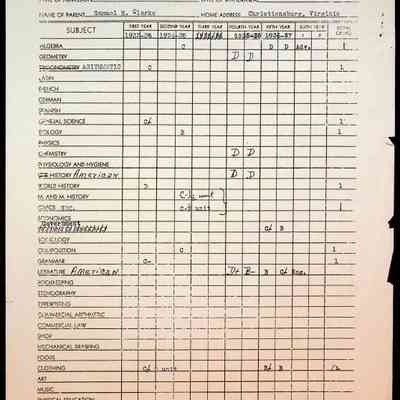 NAME OF PARENT Samuel H. Clarke HOME ADDRESS Christiansburg, Virginia
SUBJECT FIRST YEAR SECOND YEAR THIRD YEAR FOURTH YEAR FIFTH YEAR SIXTH YEAR
ALGEBRA C D D Adv. 1
GEOMETRY D D
TRIGONOMETRY ARITHMETIC C 1
LATIN
FRENCH
GERMAN
SPANISH
GENERAL SCIENCE 1
BIOLOGY 1
PHYSICS
CHEMISTRY D D
PHYSIOLOGY AND HYGIENE
HISTORY American D D
WORLD HISTORY D 1
M. AND M. HISTORY unit
CIVICS unit 1
ECONOMICS
Government B
SOCIOLOGY
COMPOSITION C 1
GRAMMAR C- 1
LITERATURE American D+ B- B Eng.
BOOKKEEPING
STENOGRAPHY
TYPEWRITING
COMMERCIAL ARITHMETIC
COMMERCIAL LAW
SHOP
MECHANICAL DRAWING
FOODS
CLOTHING unit B
ART
MUSIC
PHYSICAL EDUCATION